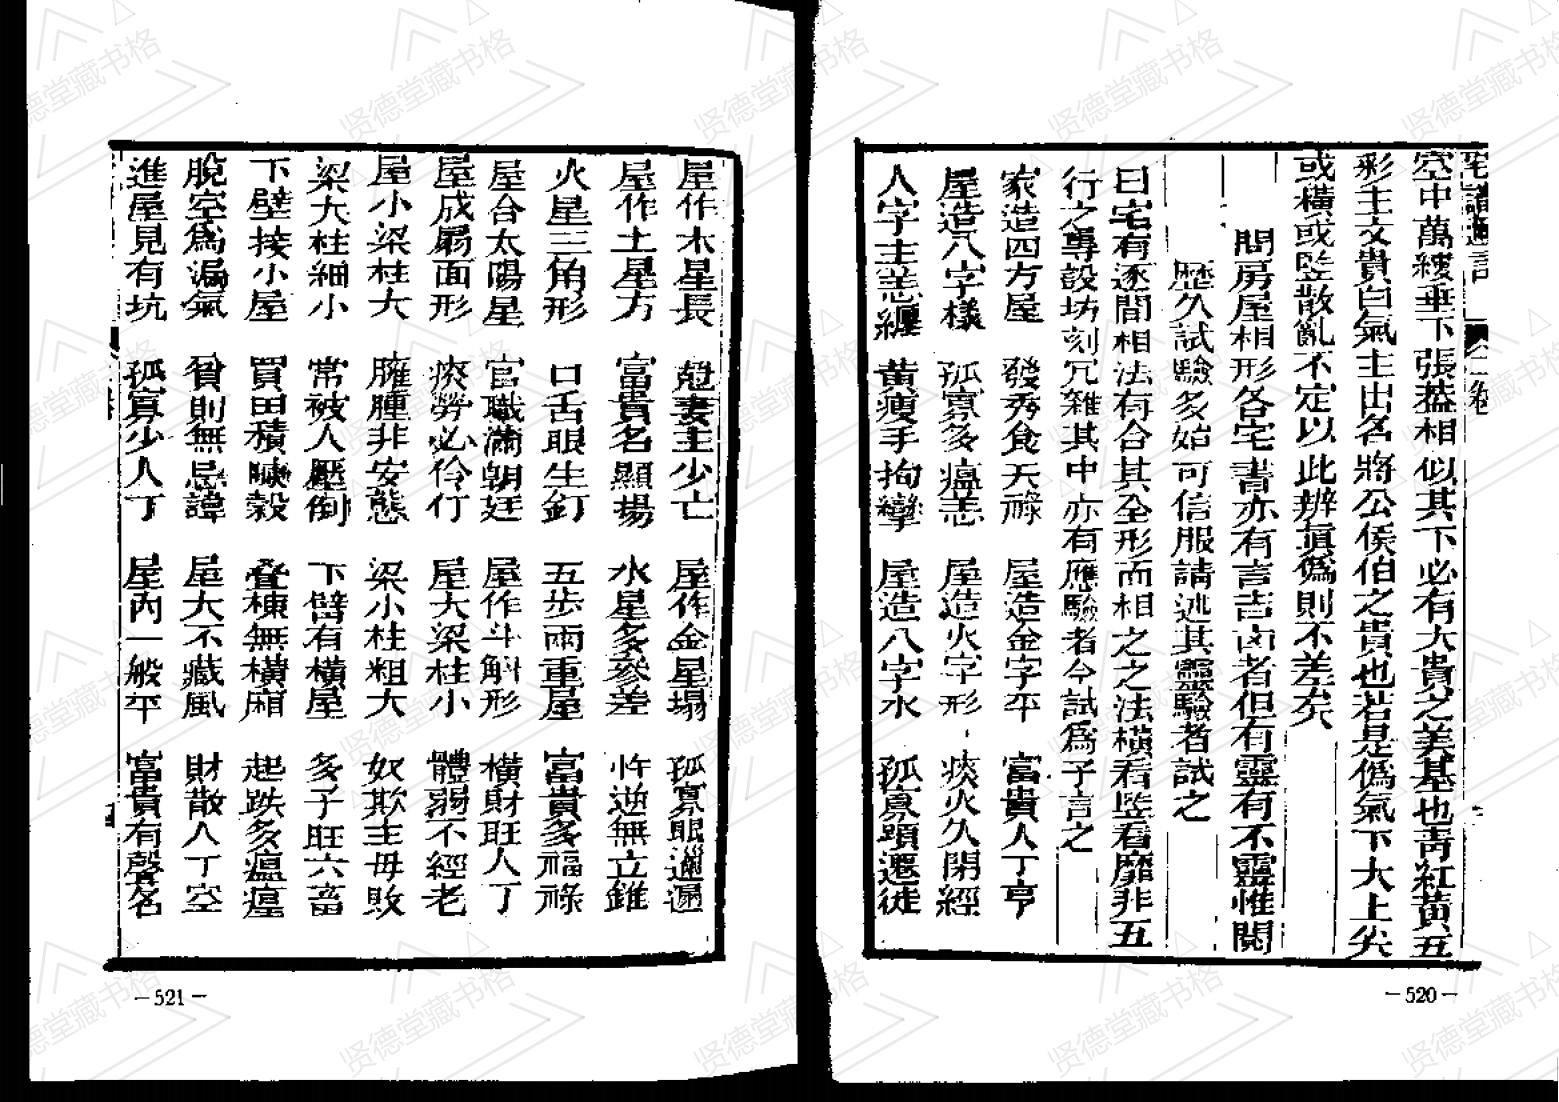 宅譜邇言 卷
空中萬縷垂下張葢相似其下必有大貴之美基也青紅黃五
彩主文貴白氣主出名將公侯伯之貴也若是僞氣下大上尖
或橫或竪散亂不定以此辨眞僞則不差矣
問房屋相形各宅書亦有言吉凶者但有靈有不靈惟閱
歷久試驗多始可信服請述其靈驗者試之
曰宅有逐間相法有合其全形而相之之法橫看竪看靡非五
行之專設坊刻冗雜其中亦有應驗者今試爲子言之
家造四方屋 發秀食天祿 屋造金字平 富貴人丁亨
屋造八字樣 孤寡多瘟恙 屋造火字形 痰火久閉經
人字主恙纏 黃瘦手拘攣 屋造八字水 孤寡頭遷徙
—520—
屋作木星長 尅妻主少亡 屋作金星塌 孤寡眼邋遢
屋作土星方 富貴名顯揚 水星多參差 忤逆無立錐
火星三角形 口舌眼生釘 五步兩重屋 富貴多福祿
屋合太陽星 官職滿朝廷 屋作斗斛形 橫財旺人丁
屋成扇面形 痰勞必伶仃 屋大梁柱小 體弱不經老
屋小梁柱大 臃腫非安態 梁小柱粗大 奴欺主母敗
梁大柱細小 常被人壓倒 下臂有橫屋 多子旺六畜
下壁接小屋 買田積陳穀 叠棟無橫廂 起跌多瘟㾮
脫空爲漏氣 貧則無忌諱 屋大不藏風 財散人丁空
進屋見有坑 孤寡少人丁 屋內一般平 富貴有聲名
—521—
贤德堂藏书格